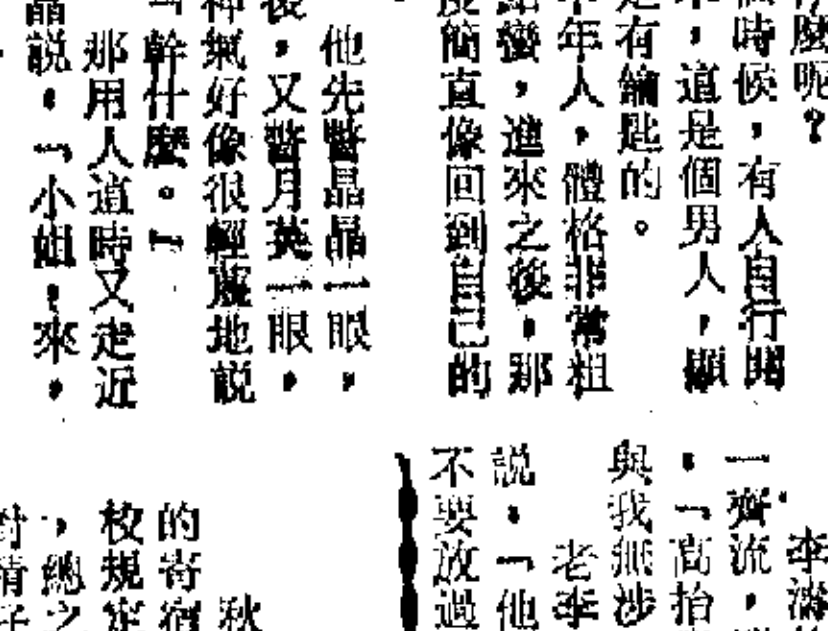 麼呢？
時候，有人自行開
，這是個男人，顯
有鑰匙的。
年人，體格非常粗
，進來之後，那
簡直像回到自己的
他先瞥晶晶一眼，
，又瞥月英一眼，
神氣好像很輕蔑地説
幹什麼。』
那用人這時又走近
晶説，「小姐，來，
李
一齊流，
，「高抬
與我無涉
老李
説，「他
不要放過
秋
的寄宿
枚規定
，總之